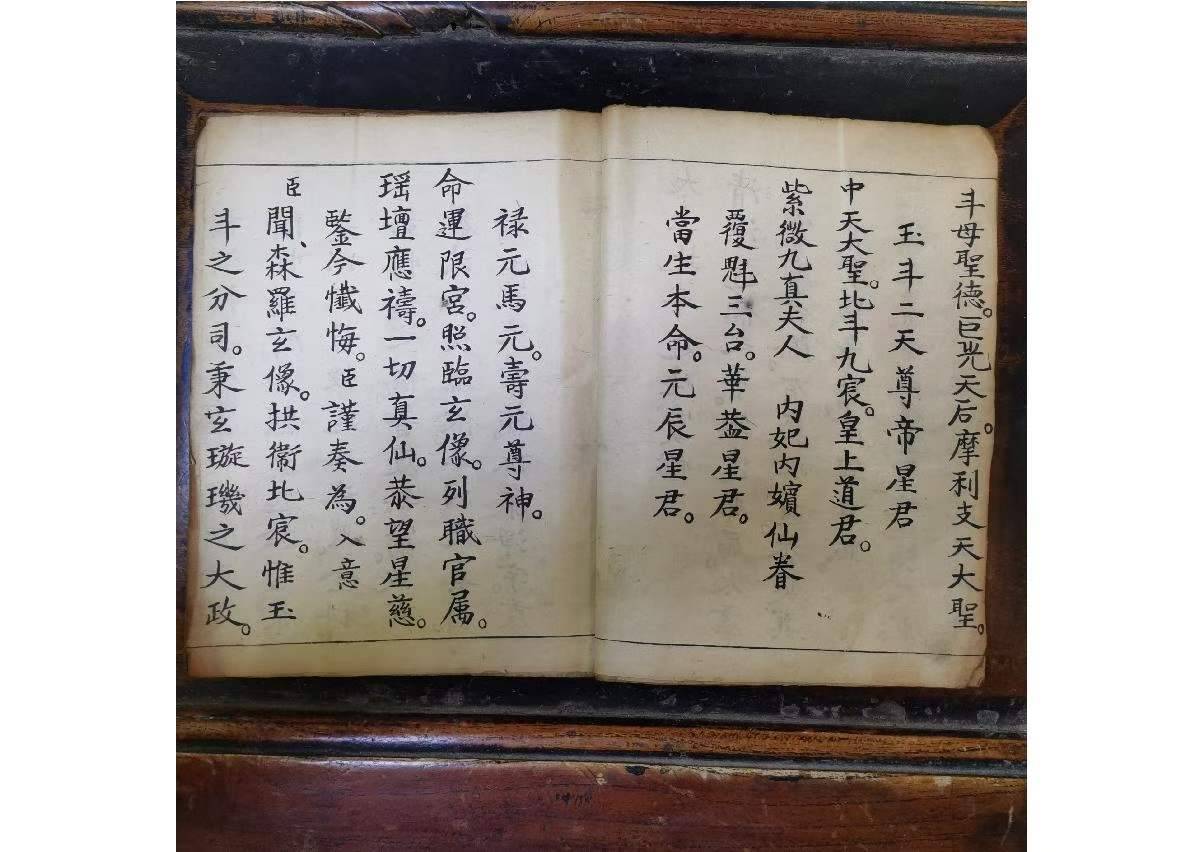 斗母聖德。巨光天后。摩利支天大聖。
玉斗二天尊帝星君
中天大聖。北斗九宸。皇上道君。
紫微九真夫人　內妃內嬪仙眷
覆魁三台。華蓋星君。
當生本命。元辰星君。
禄元馬元。壽元尊神。
命運限宮。照臨玄像。列職官属。
瑶壇應禱。一切真仙。恭望星慈。
鑒今懺悔。臣謹奏為。入意
臣聞、森羅玄像。拱衛北宸。惟玉
斗之分司。秉玄璇璣之大政。